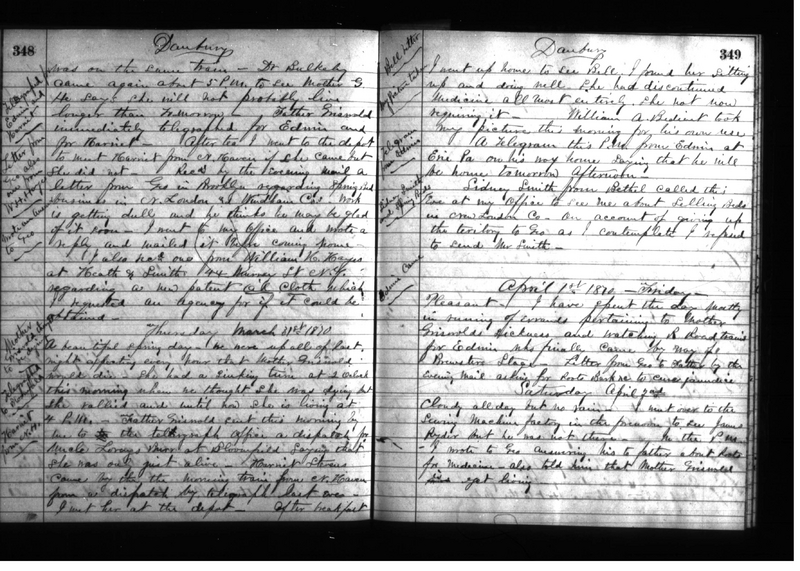 348
Danbury
was on the same train - Dr Bulkeley
came again about 5 P.M. to see Mother G.
He says she will not probably live
longer than tomorrow - Father Griswold
immediately telegraphed for Edwin and
for Harriet - After tea I went to the depot
to meet Harriet from N. Haven if she came but
she did not - Recd by the evening mail a
letter from Geo in Brooklin regarding spring bed
business in N. London & Windham Cos. Work
is getting dull and he thinks he may be glad
of it soon - I went to my office and wrote a
reply and mailed it before coming home
I also recd one from William H. Hayes
at Heath & Smiths 44 Murray St N.Y.
regarding a new patent Oil Cloth which
I requested an agency for if it could be
obtained -
Thursday March 31st 1870
A beautiful spring day - We were up all of last
night expecting every hour that Mother Griswold
would die - She had a sinking turn at 2 Oclock
this morning when we thought she was dying but
she rallied and until now she is living at
4 P.M. - Father Griswold sent this morning by
me to the telegraph office a dispatch for
Uncle at Bloomfield saying that
she was only just alive - Harriet
came by the morning train from N. Haven
from a dispatch by telegraph last eve -
I met her at the depot - After breakfast
Telegraphed
Edwin and
Harriet
Letter from
Geo also
from
W.H. Hayes
to Geo
Mother
Griswold
Telegraphed
to
Harriet
from N.H.
Danbury
349
I went up home to see Bill. I found her sitting
up and doing well. She had discontinued
medicine all most entirely she not now
requiring it - William A Bedient took
my picture this morning for his own use
A telegram this P.M. from Edwin at
Erie Pa on his way home saying that he will
be home tomorrow afternoon -
Sidney Smith from Bethel called this
Eve at my office to see me about selling Beds
in New London Co - On account of giving up
the territory to Geo as I contemplate I refused
to send Mr Smith -
April 1st 1870 - Friday -
Pleasant - I have spent the day mostly
in running of errands pertaining to Mother
Griswolds sickness and watching R Road trains
for Edwin who finally came by way of
Brewsters Stage - Letter from Geo to Father by the
evening mail asking for Roots Barks &c to cure jaundice
Saturday April 2nd
Cloudy all day but no rain - I went over to the
Sewing Machine factory in the forenoon to see James
Ryder but he was not there - In the P.M.
I wrote to Geo answering his to father about Roots
for medicine - also told him that Mother Griswold
was yet living
My Picture taken
Telegram
from Edwin
Sidney Smith
Beds
Edwin Came